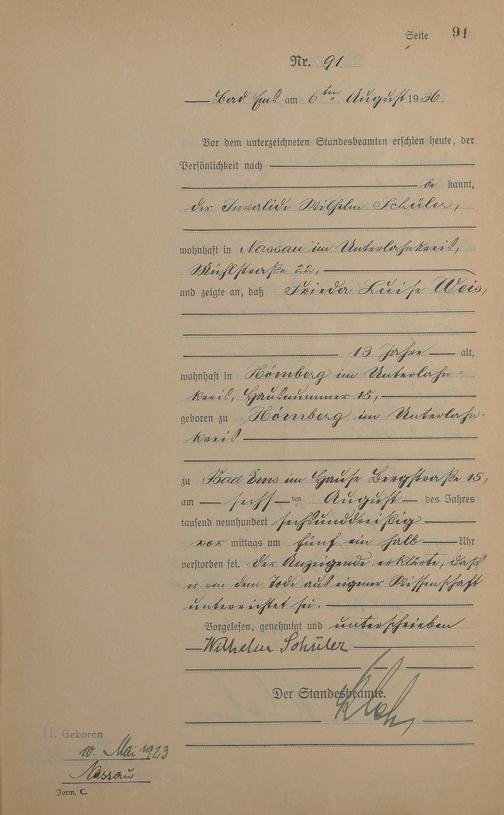 Seite 91
Nr. 91
Bad Ems am 6ten August 1936
Vor dem unterzeichneten Standesbeamten erschien heute, der
Persönlichkeit nach
be kannt,
der Invalide Wilhelm Schüler,
wohnhaft in Nassau im Unterlahnkreis,
Mühlstraße 22,
und zeigte an, daß Frieda Luise Weis,
13 Jahre alt,
wohnhaft in Hömberg im Unterlahn-
kreis, Hausnummer 15,
geboren zu Hömberg im Unterlahn-
kreis
zu Bad Ems im Hause Bergstraße 15,
am sechsten August des Jahres
tausend neunhundert sechsunddreißig
vor mittags um fünf ein halb Uhr
verstorben sei. Der Anzeigende erklärte, daß
er von dem Tode aus eigener Wissenschaft
unterrichtet sei.
Vorgelesen, genehmigt und unterschrieben
Wilhelm Schüler
Der Standesbeamte.
H. Geboren
10. Mai 1923
Nassau
Form. C.